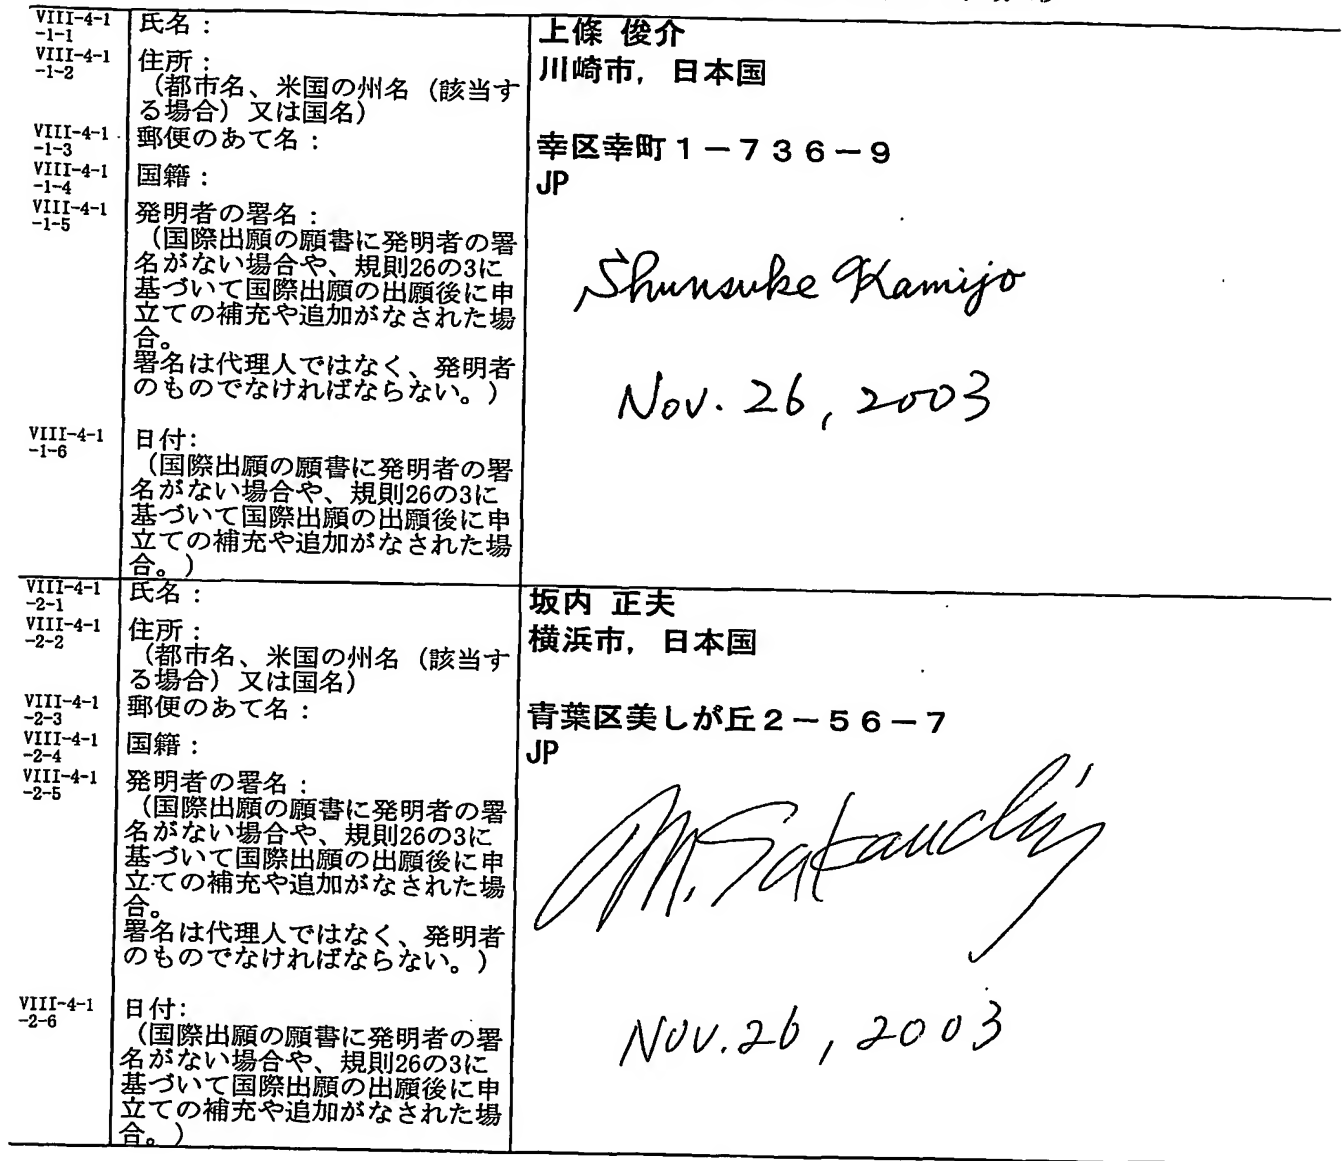 VIII-4-1
-1-1
氏名：
上條 俊介
VIII-4-1
-1-2
住所：
（都市名、米国の州名（該当す
る場合）又は国名）
川崎市, 日本国
VIII-4-1
-1-3
郵便のあて名：
幸区幸町１－７３６－９
VIII-4-1
-1-4
国籍：
JP
VIII-4-1
-1-5
発明者の署名：
（国際出願の願書に発明者の署
名がない場合や、規則26の3に
基づいて国際出願の出願後に申
立ての補充や追加がなされた場
合。
署名は代理人ではなく、発明者
のものでなければならない。）
Shunsuke Kamijo
Nov. 26, 2003
VIII-4-1
-1-6
日付:
（国際出願の願書に発明者の署
名がない場合や、規則26の3に
基づいて国際出願の出願後に申
立ての補充や追加がなされた場
合。）
VIII-4-1
-2-1
氏名：
坂内 正夫
VIII-4-1
-2-2
住所：
（都市名、米国の州名（該当す
る場合）又は国名）
横浜市, 日本国
VIII-4-1
-2-3
郵便のあて名：
青葉区美しが丘２－５６－７
VIII-4-1
-2-4
国籍：
JP
VIII-4-1
-2-5
発明者の署名：
（国際出願の願書に発明者の署
名がない場合や、規則26の3に
基づいて国際出願の出願後に申
立ての補充や追加がなされた場
合。
署名は代理人ではなく、発明者
のものでなければならない。）
M. Sakauchi
VIII-4-1
-2-6
日付:
（国際出願の願書に発明者の署
名がない場合や、規則26の3に
基づいて国際出願の出願後に申
立ての補充や追加がなされた場
合。）
Nov. 26, 2003